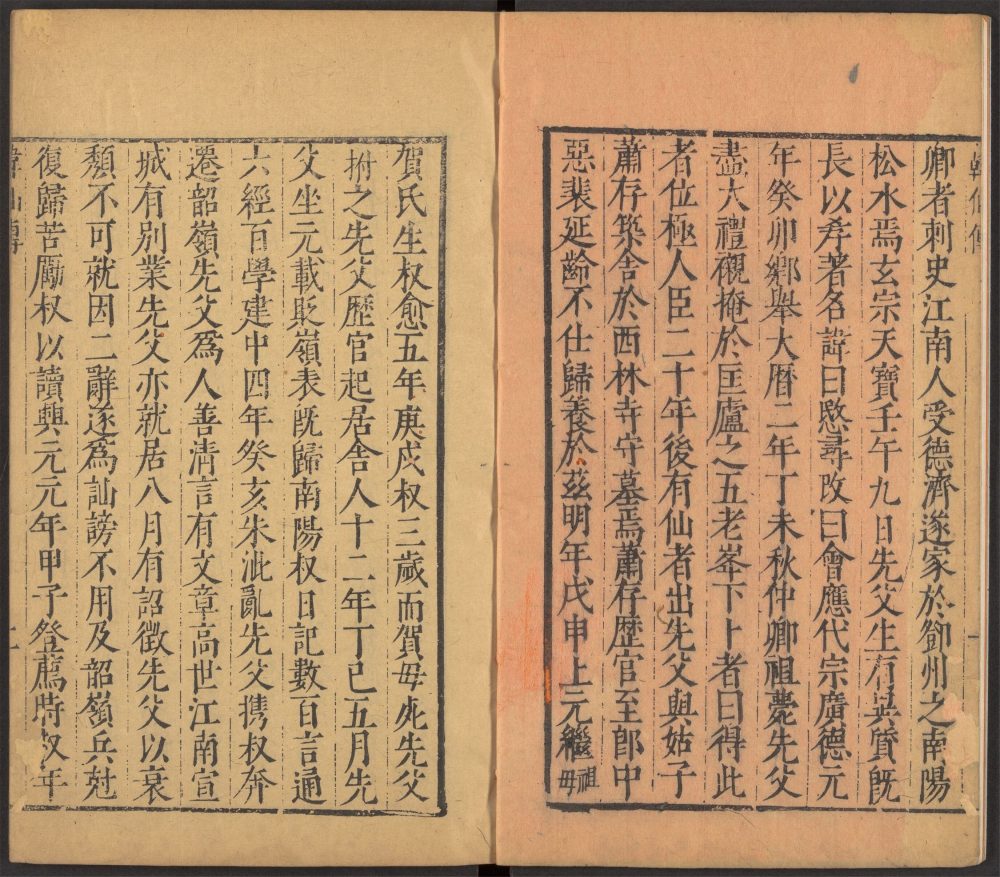 卿者刺史江南人受德濟遂家於鄧州之南陽
松水焉玄宗天寶壬午九日先父生有異質旣
長以孝著名諱曰愍尋改曰會應代宗廣德元
年癸卯鄉舉大曆二年丁未秋仲卿祖薨先父
盡大禮襯掩於匡廬之五老峯下卜者曰得此
者位極人臣二十年後有仙者出先父與姑子
蕭存築舍於西林寺守墓焉蕭存歷官至郎中
惡裴延齡不仕歸養於茲明年戊申上元繼祖母
賀氏生叔愈五年庚戌叔三歲而賀母死先父
拊之先父歷官起居舍人十二年丁巳五月先
父坐元載貶嶺表旣歸南陽叔日記數百言通
六經百學建中四年癸亥朱泚亂先父携叔奔
遷韶嶺先父爲人善清言有文章高世江南宣
城有別業先父亦就居八月有詔徵先父以衰
頽不可就因二辭遂爲訕謗不用及韶嶺兵尅
復歸苦勵叔以讀興元元年甲子登薦時叔年